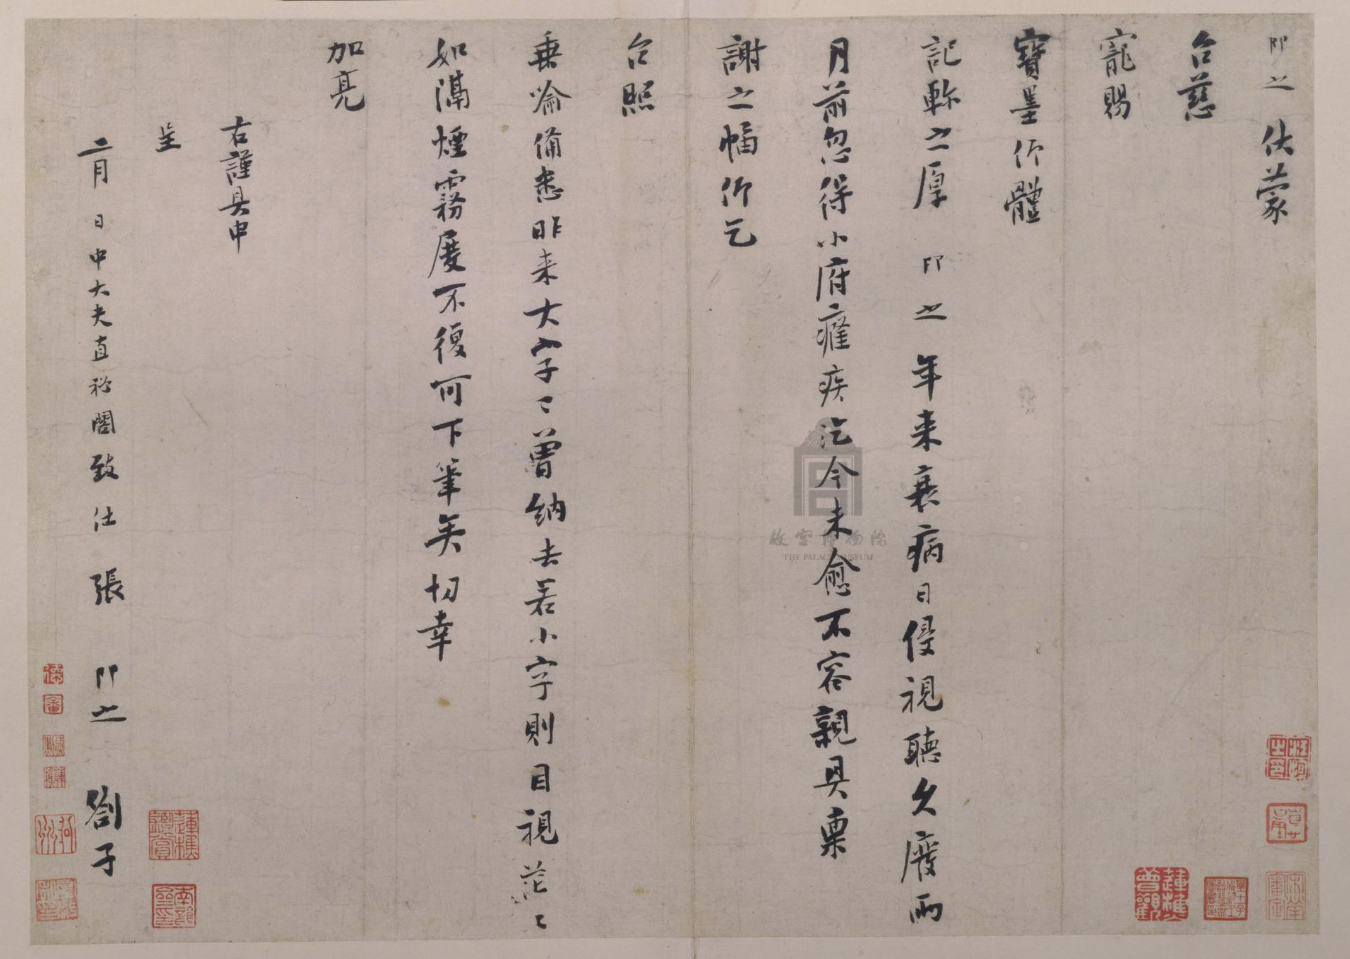 即之 伏蒙
台慈
寵賜
寶墨仰體
記軫之厚 即之 年来衰病日侵視聽久廢兩
月前忽得小府癰疾迄今未愈不容親具稟
謝之幅仰乞
台照
垂喻備悉昨来大字々曾納去若小字則目視茫々
如隔煙霧屢不復可下筆矣切幸
加亮
右謹具申
呈
二月 日中大夫直祕閣致仕 張 即之 劄子
故宫博物院
THE PALACE MUSEUM